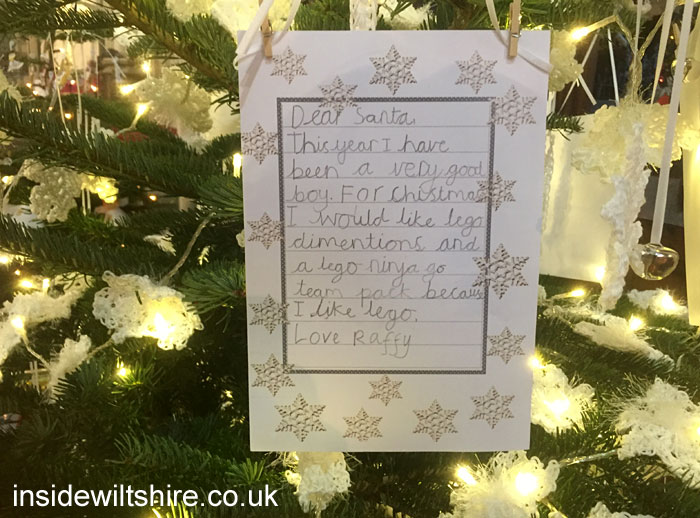 Dear Santa,
This year I have
been a very good
boy. FOr Chistmas
I would like lego
dimentions and
a lego ninja go
team pack becaus
I like lego.
Love Raffy
insidewiltshire.co.uk